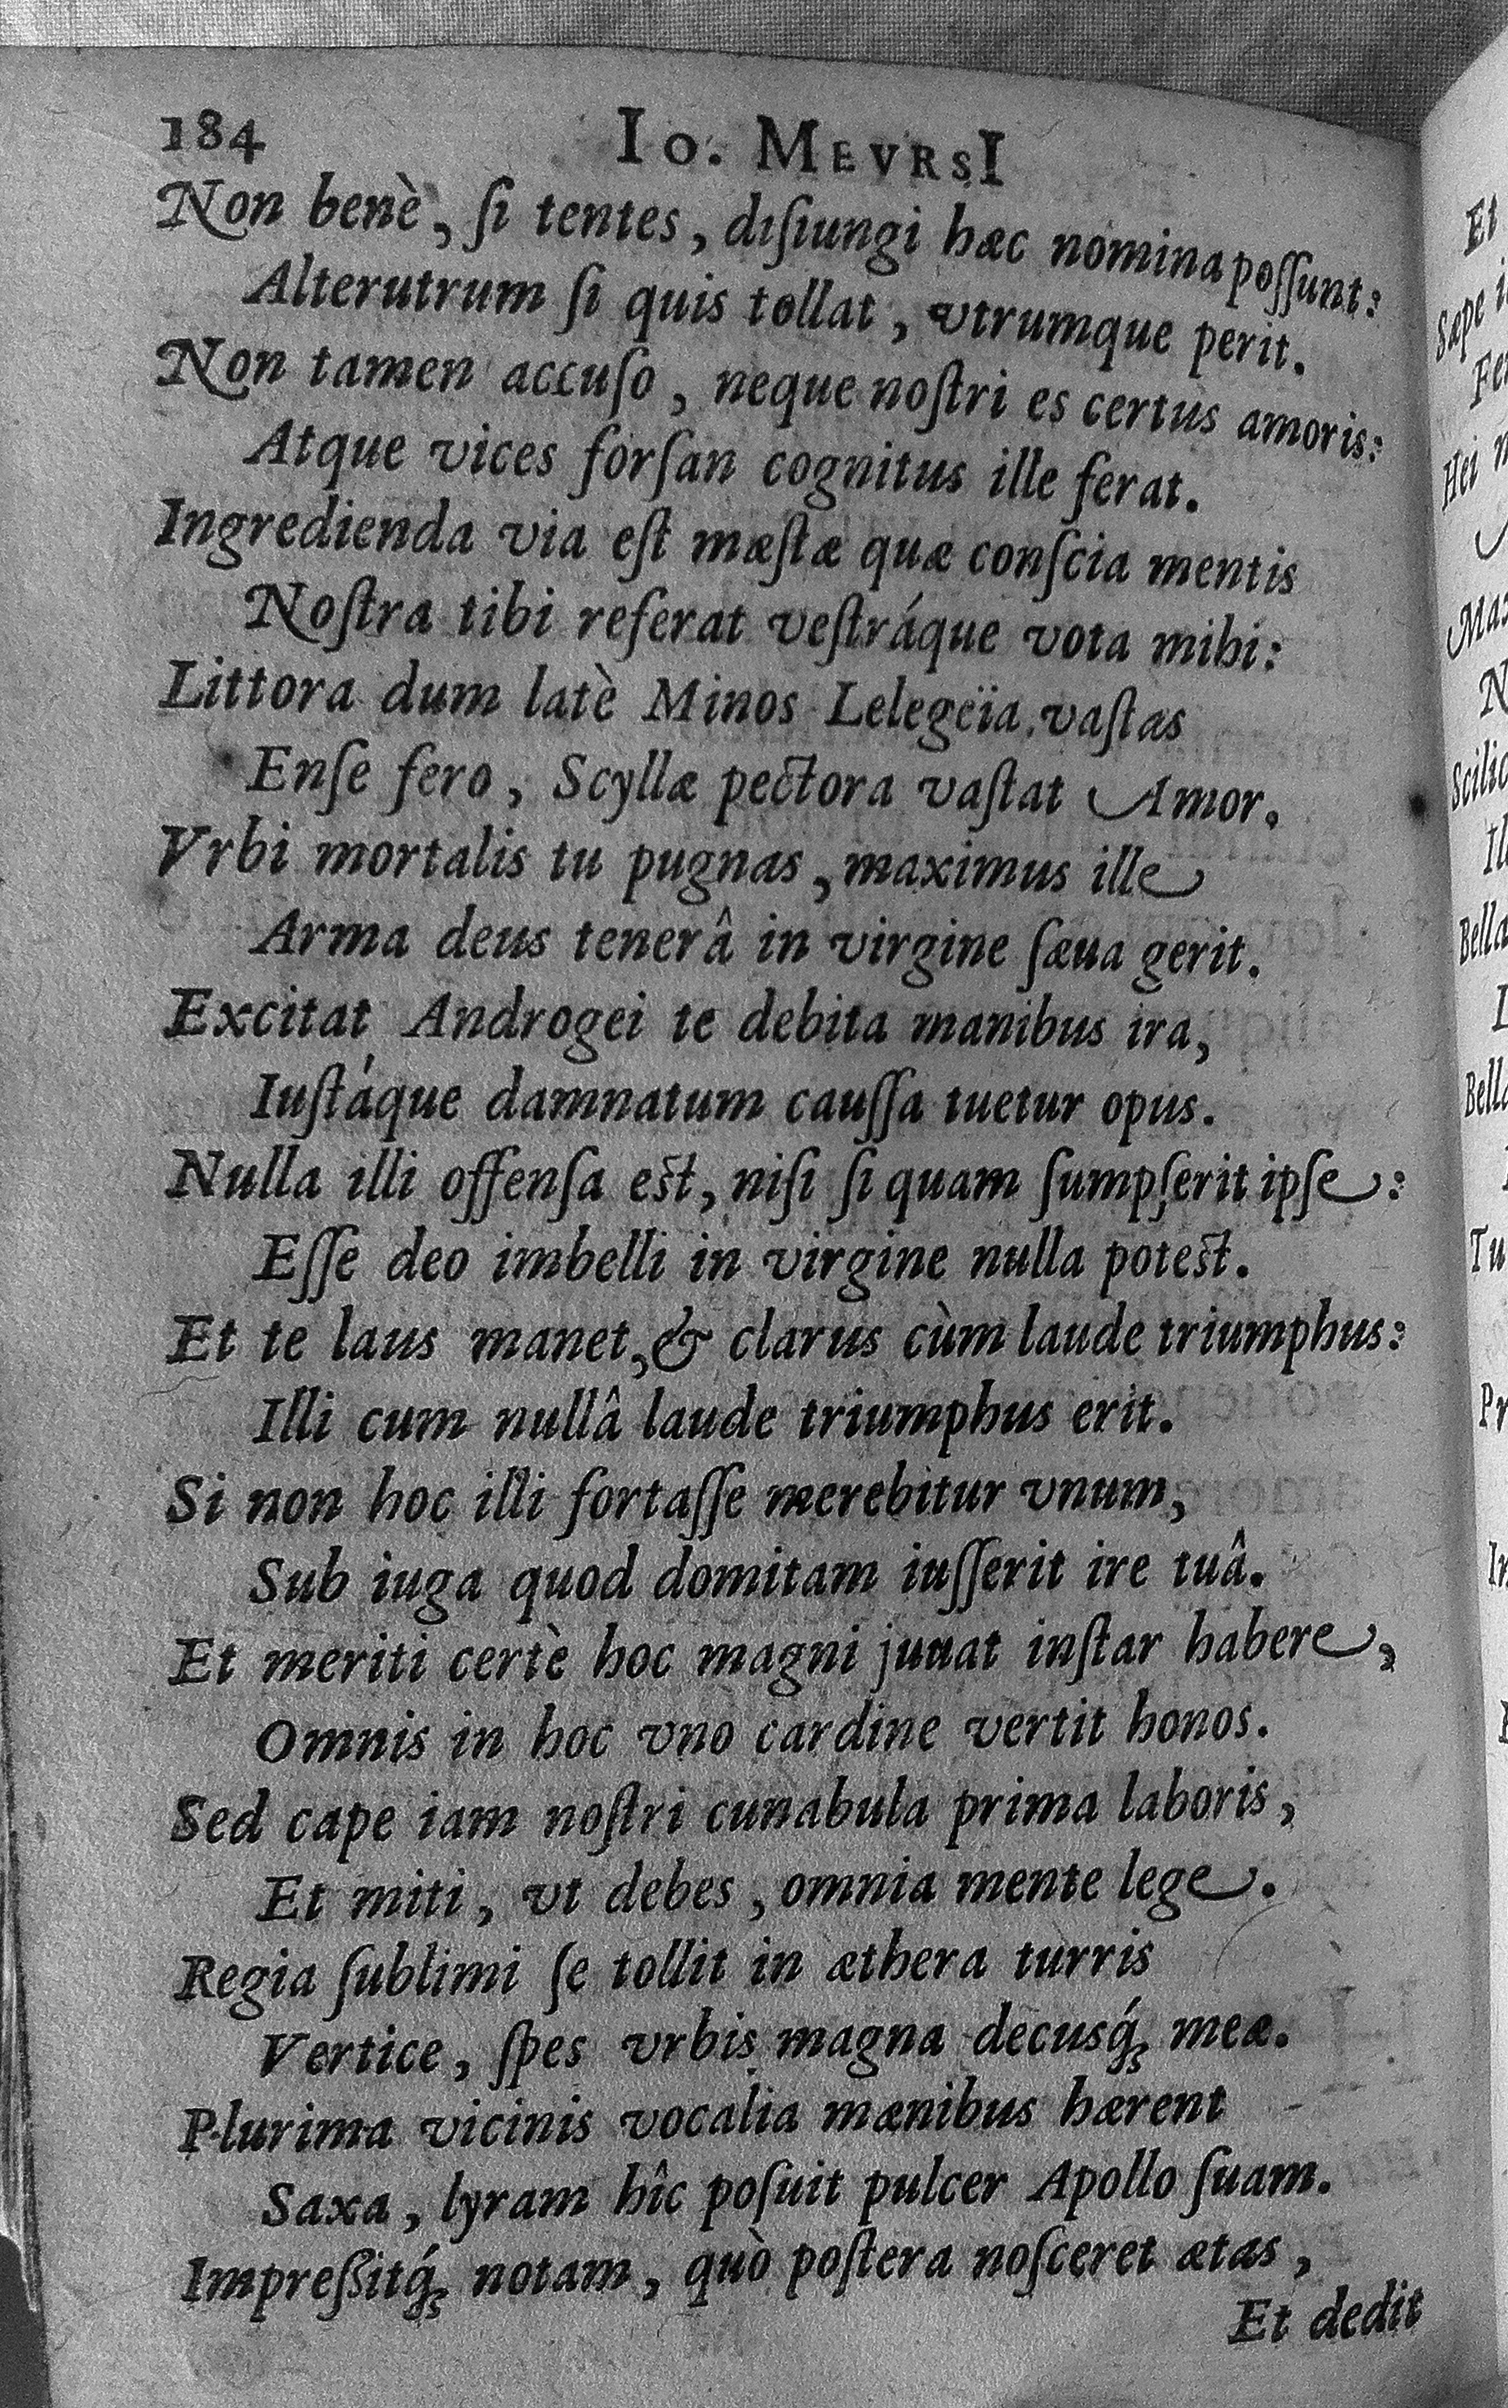 184 Io. MEVRSI
Non benè, ſi tentes, diſiungi hæc nomina poſſunt:
Alterutrum ſi quis tollat, vtrumque perit.
Non tamen accuſo, neque noſtri es certus amoris:
Atque vices forſan cognitus ille ferat.
Ingredienda via eſt mæſtæ quæ conſcia mentis
Noſtra tibi referat veſtráque vota mihi:
Littora dum latè Minos Lelegeïa vaſtas
Enſe fero, Scyllæ pectora vaſtat Amor.
Vrbi mortalis tu pugnas, maximus ille
Arma deus tenerâ in virgine ſæua gerit.
Excitat Androgei te debita manibus ira,
Iuſtáque damnatum cauſſa tuetur opus.
Nulla illi offenſa eſt, niſi ſi quam ſumpſerit ipſe:
Eſſe deo imbelli in virgine nulla poteſt.
Et te laus manet, & clarus cùm laude triumphus:
Illi cum nullâ laude triumphus erit.
Si non hoc illi fortaſſe merebitur vnum,
Sub iuga quod domitam iuſſerit ire tuâ.
Et meriti certè hoc magni juuat inſtar habere,
Omnis in hoc vno cardine vertit honos.
Sed cape iam noſtri cunabula prima laboris,
Et miti, vt debes, omnia mente lege.
Regia ſublimi ſe tollit in æthera turris
Vertice, ſpes vrbis magna decusq́; meæ.
Plurima vicinis vocalia mænibus hærent
Saxa, lyram hîc poſuit pulcer Apollo ſuam.
Impreſſitq́; notam, quò poſtera noſceret ætas,
Et dedit